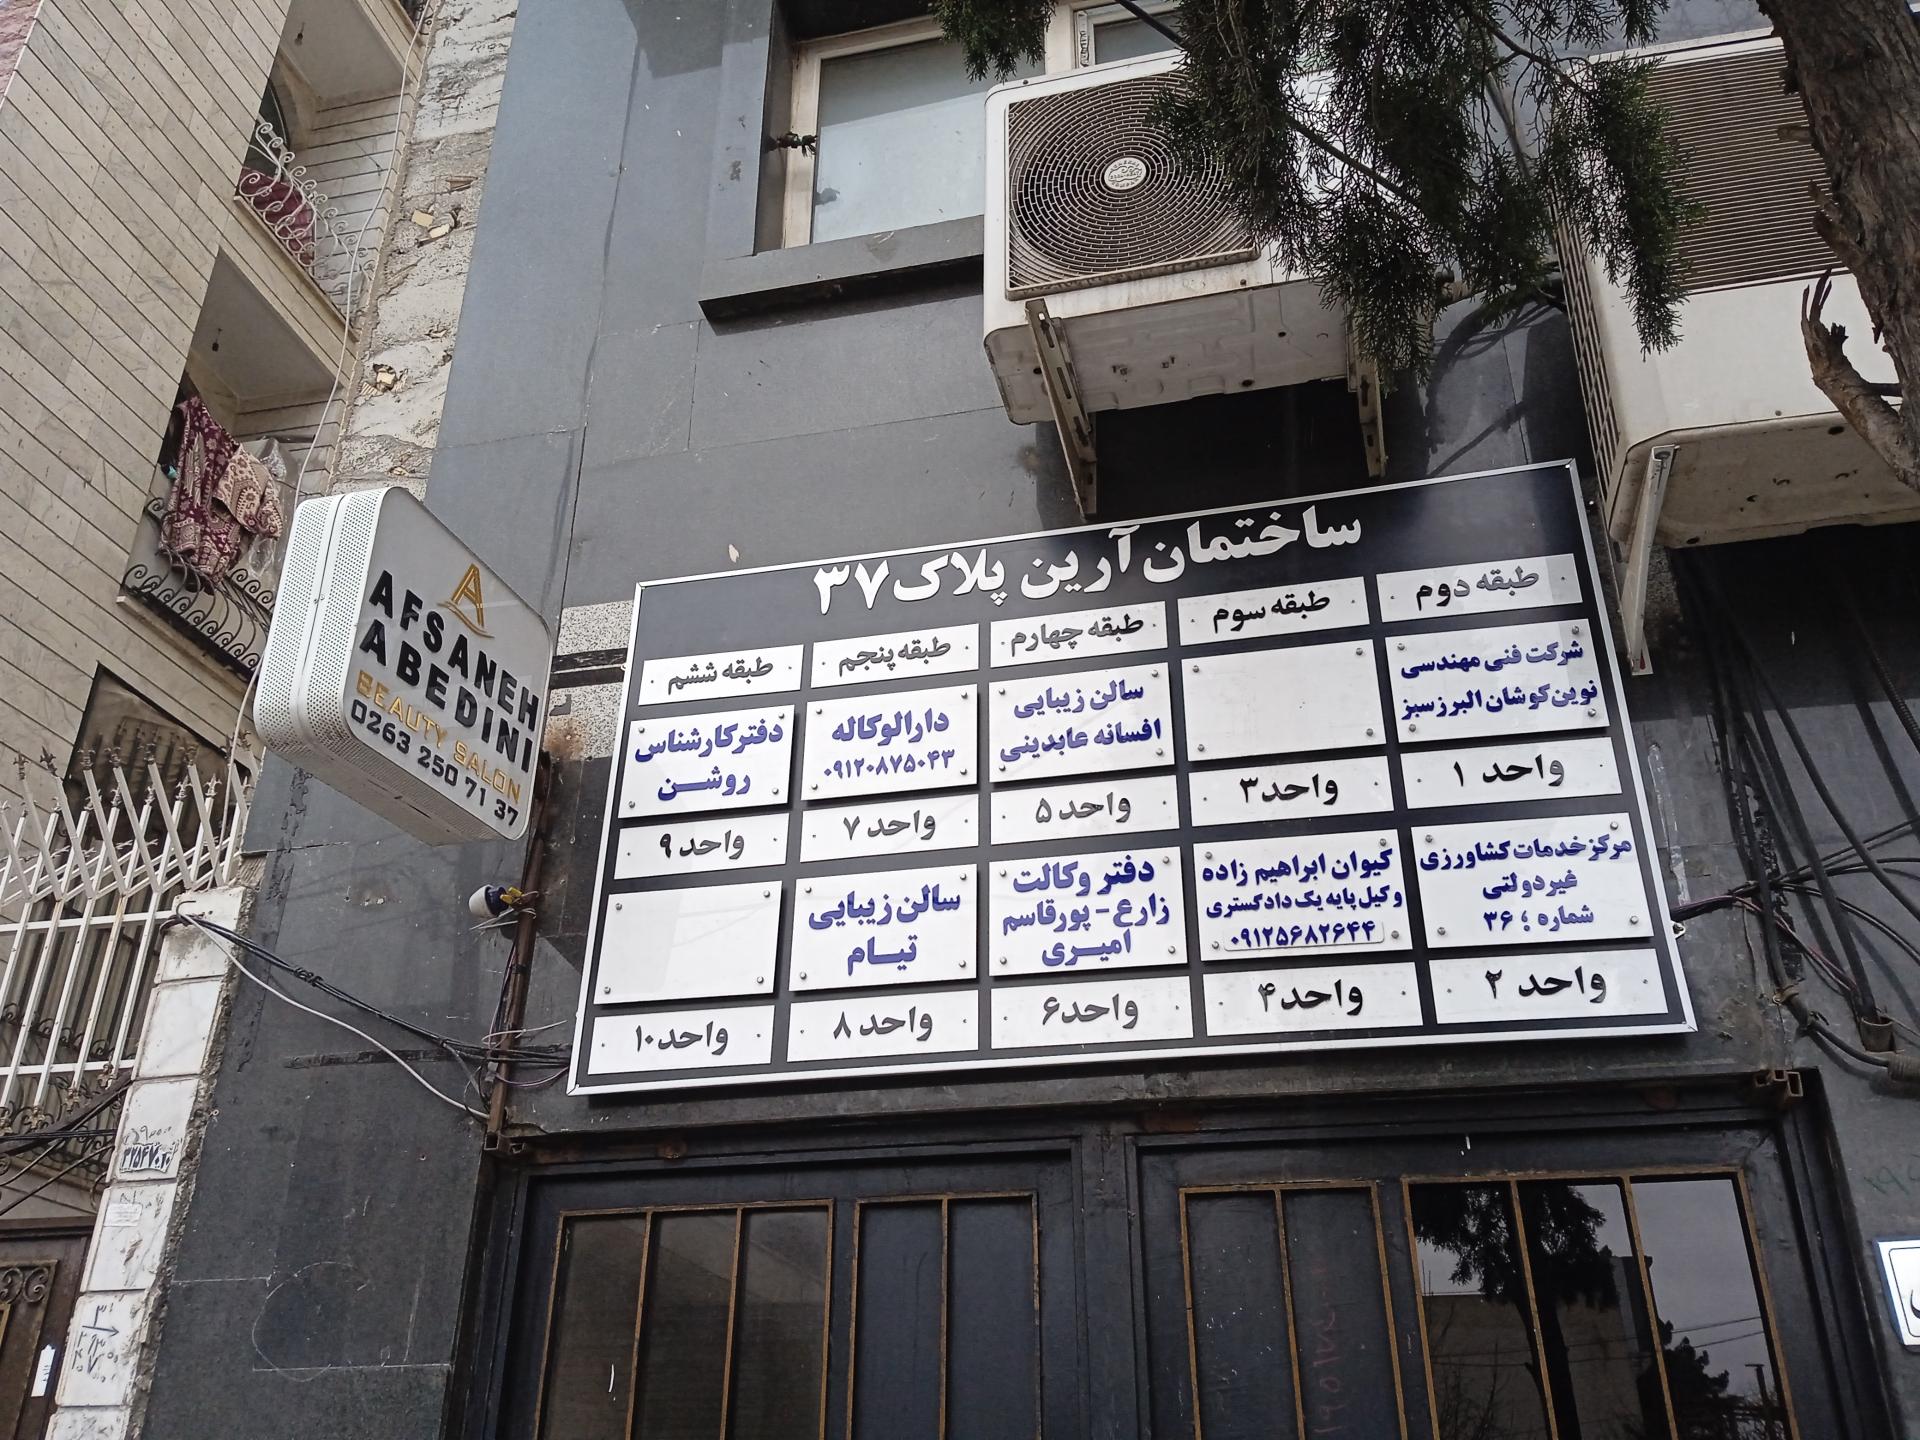 ساختمان آرین پلاک ۳۷
طبقه دوم
شرکت فنی مهندسی
نوین کوشان البرز سبز
واحد ۱
مرکز خدمات کشاورزی
غیر دولتی
شماره ؛ ۳۶
واحد ۲
طبقه سوم
واحد ۳
کیوان ابراهیم زاده
وکیل پایه یک دادگستری
۰۹۱۲۵۶۸۲۶۴۴
واحد ۴
طبقه چهارم
سالن زیبایی
افسانه عابدینی
واحد ۵
دفتر وکالت
زارع - پورقاسم
امیـری
واحد ۶
طبقه پنجم
دارالوکاله
۰۹۱۲۰۸۷۵۰۴۳
واحد ۷
سالن زیبایی
تیـام
واحد ۸
طبقه ششم
دفتر کارشناس
روشـن
واحد ۹
واحد ۱۰
AFSANEH
ABEDINI
BEAUTY SALON
0263 250 71 37